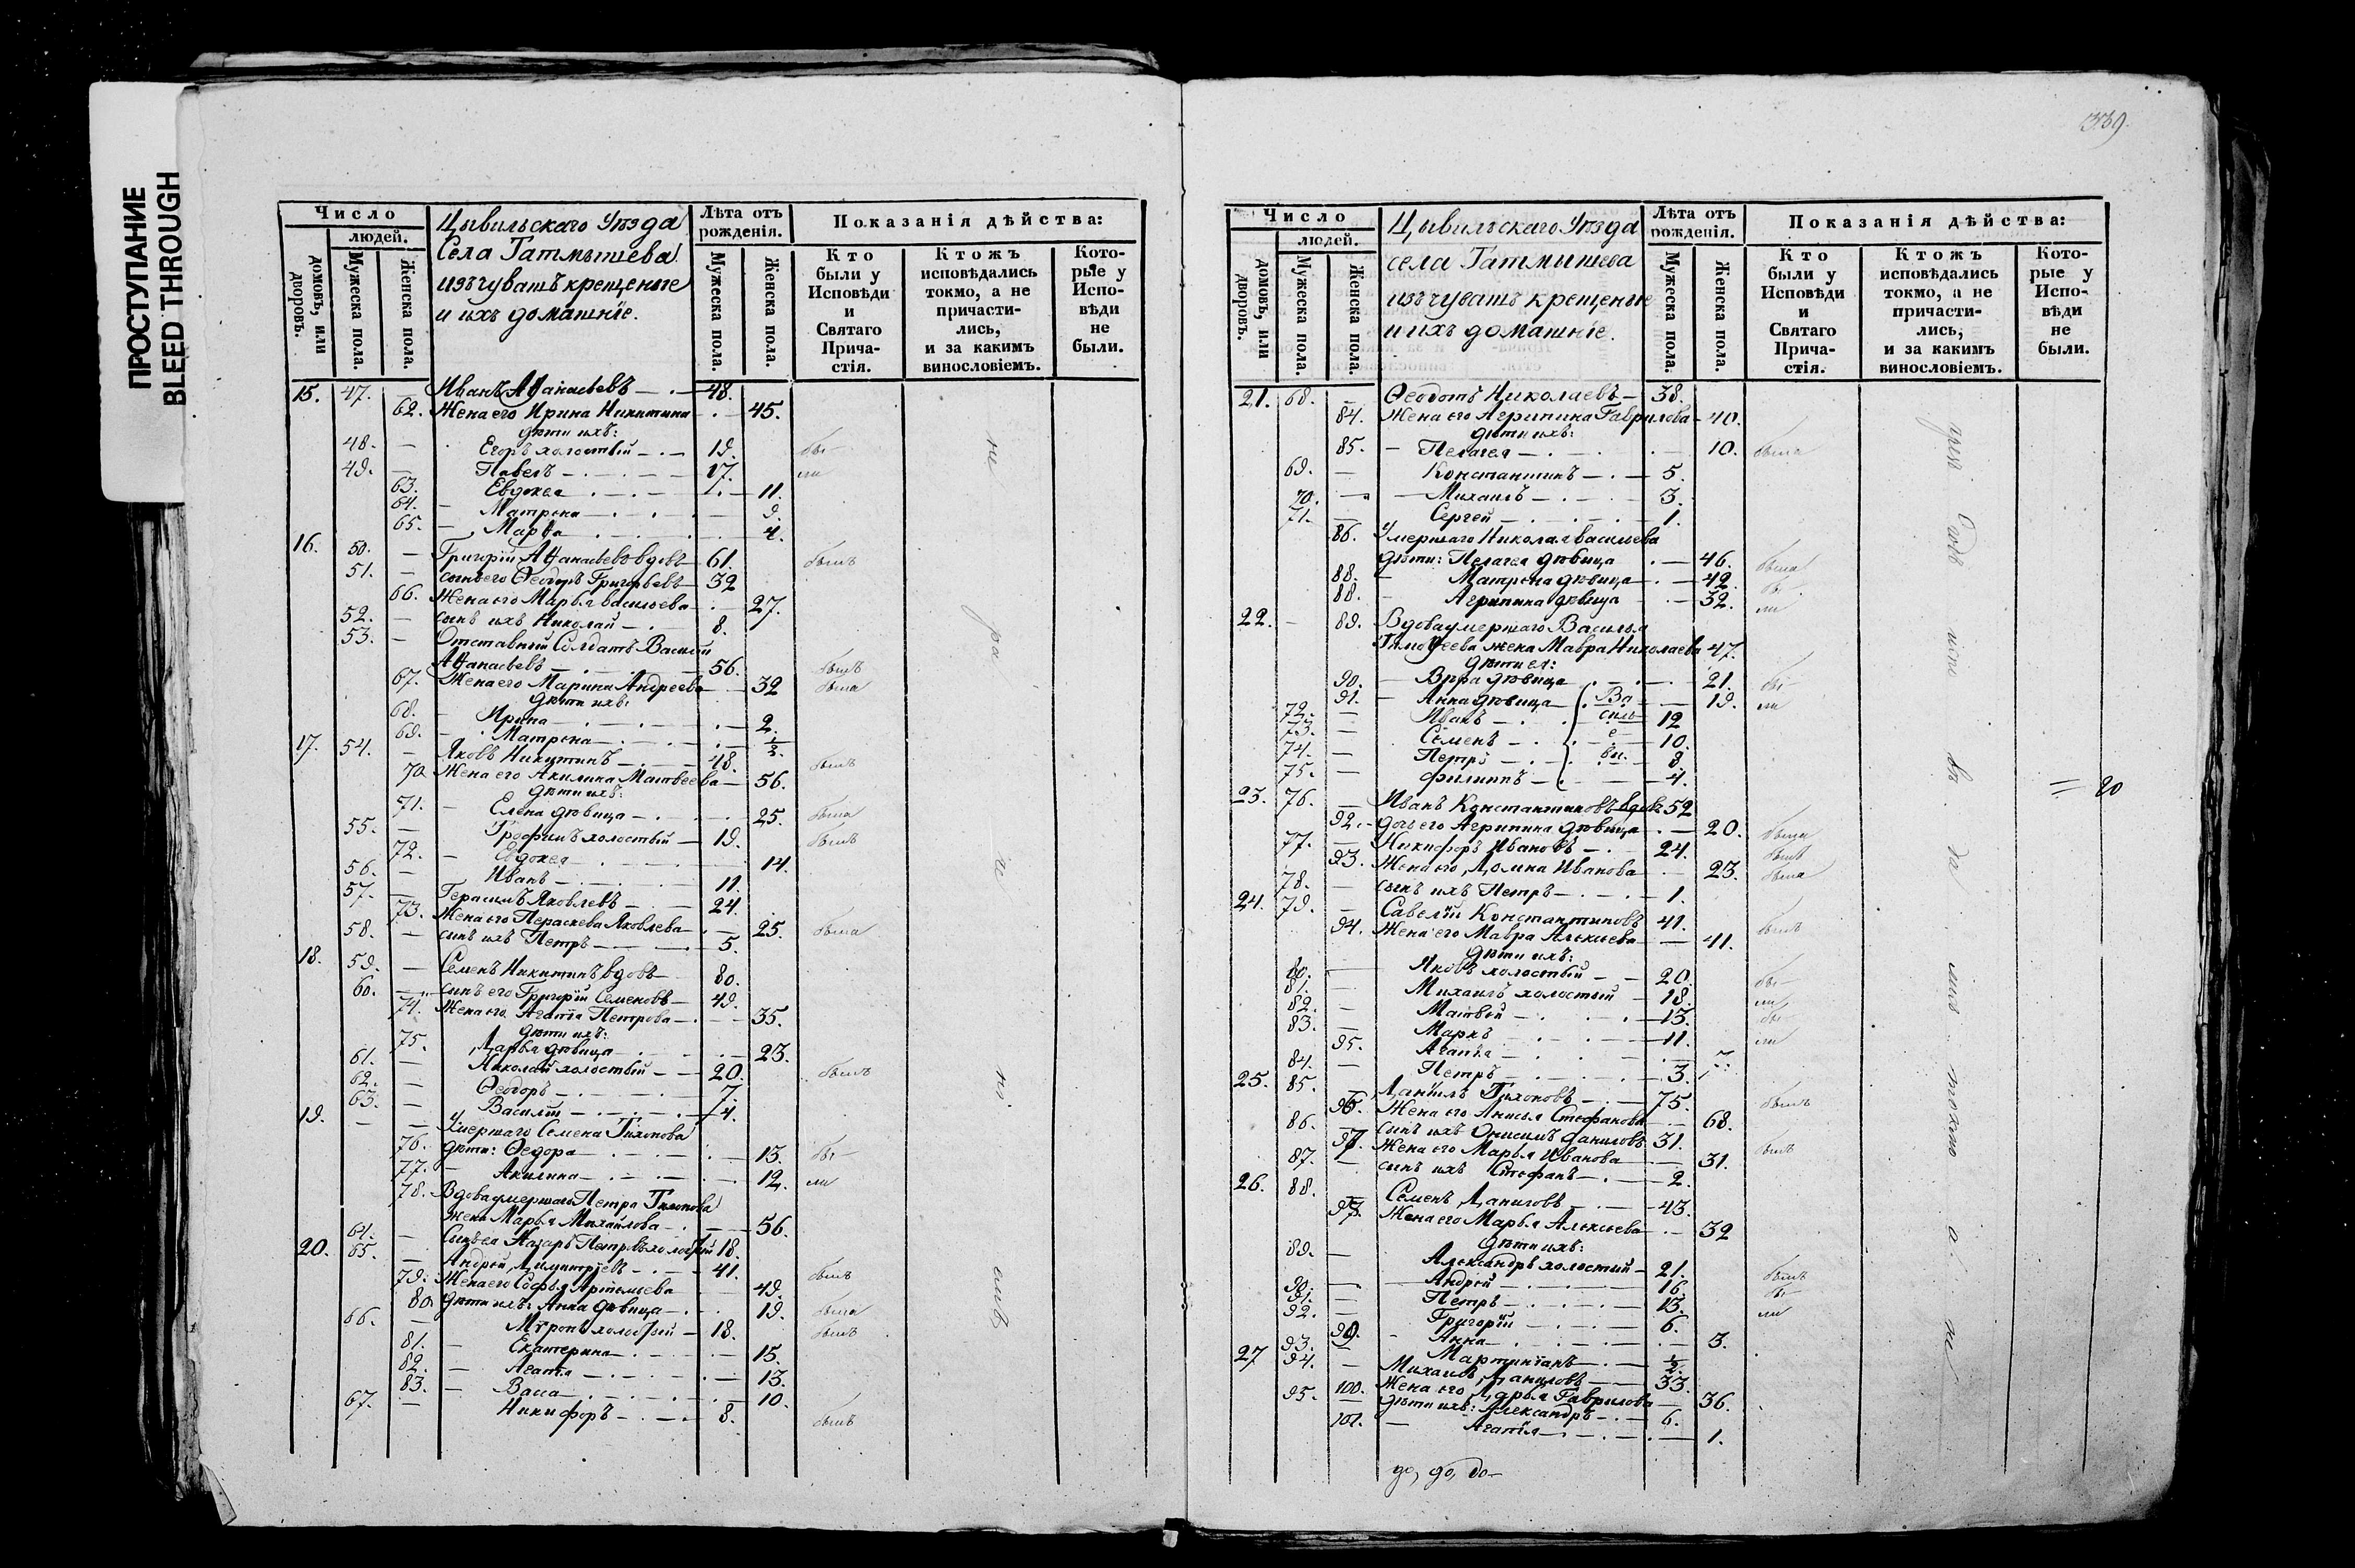 ПРОСТУПАНИЕ
BLEED THROUGH
Число
людей.
домовъ, или дворовъ.
Мужеска пола.
Женска пола.
Цывильскаго Уѣзда
Села Татмышева
изъ чувашъ крещеные
и ихъ домашніе.
Лѣта отъ рожденія.
Мужеска пола.
Женска пола.
Показанія дѣйства:
Кто были у Исповѣди и Святаго Причастія.
Ктожъ исповѣдались токмо, а не причастились, и за какимъ винословіемъ.
Которые у Исповѣди не были.
15. 47. — Иванъ Аѳанасьевъ — 48.
62. Жена его Ирина Никитина — 45.
дѣти ихъ:
48. — Егоръ холостый — 19. бы-
49. — Павелъ — 17. ли
63. Евдокея — 11.
64. — Матрона — 9.
65. — Марѳа — 4.
16. 50. — Григорій Аѳанасьевъ вдовъ — 61. былъ
51. — сынъ его Ѳеодоръ Григорьевъ — 32
66. Жена его Марья Васильева — 27.
52. — сынъ ихъ Николай — 8.
53. — Отставный Солдатъ Василій
Аѳанасьевъ — 56. былъ
67. Жена его Марина Андреева — 32 была
дѣти ихъ:
68. — Ирина — 2.
69. — Матрона — 1/2.
17. 54. — Яковъ Никитинъ — 48. былъ
70. Жена его Акилина Матвеева — 56.
дѣти ихъ:
71. — Елена дѣвица — 25. была
55. — Трофимъ холостый — 19. былъ
72. — Евдокея — 14.
56. — Иванъ — 11.
57. — Герасимъ Яковлевъ — 24.
73. Жена его Параскева Яковлева — 25. была
58. — сынъ ихъ Петръ — 5.
18. 59. — Семенъ Никитинъ вдовъ — 80.
60. — сынъ его Григорій Семеновъ — 49.
74. Жена его Агаѳія Петрова — 35.
дѣти ихъ:
75. Дарья дѣвица — 23.
61. — Николай холостый — 20. былъ
62. — Ѳеодоръ — 7.
63. — Василій — 4.
19. — — Умершаго Семена Тихонова
76. дѣти: Ѳедора — 13. бы-
77. — Акилина — 12. ли
78. Вдова умершаго Петра Тихонова
жена Марья Михайлова — 56.
64. — Сынъ ея Назаръ Петровъ холостый 18.
20. 65. — Андрей Димитріевъ — 41. былъ
79. Жена его Софья Артемьева — 49.
80. дѣти ихъ: Анна дѣвица — 19. была
66. — Мѵронъ холостый — 18. былъ
81. — Екатерина — 15.
82. — Агаѳія — 13.
83. — Васа — 10.
67. — Никифоръ — 8. былъ
Число
людей.
домовъ, или дворовъ.
Мужеска пола.
Женска пола.
Цывильскаго Уѣзда
села Татмышева
изъ чувашъ крещеные
и ихъ домашніе.
Лѣта отъ рожденія.
Мужеска пола.
Женска пола.
Показанія дѣйства:
Кто были у Исповѣди и Святаго Причастія.
Ктожъ исповѣдались токмо, а не причастились, и за какимъ винословіемъ.
Которые у Исповѣди не были.
21. 68. — Ѳеодотъ Николаевъ — 38.
84. Жена его Агрипина Гаврилова — 40.
дѣти ихъ:
85. — Пелагея — 10. была
69. — Константинъ — 5.
70. — Михаилъ — 3.
71. — Сергей — 1.
86. Умершаго Николая Васильева
дѣти: Пелагея дѣвица — 46. была
88. — Матрона дѣвица — 42. бы-
88. — Агрипина дѣвица — 32. ли
22. — 89. Вдова умершаго Василья
Тимоѳеева жена Мавра Николаева 47.
дѣти ея:
90. — Вѣра дѣвица — 21. бы-
91. — Анна дѣвица — 19. ли
72. — Иванъ — 12
73. — Семенъ — 10.
74. — Петръ — 8.
75. — Филиппъ — 4.
Ва
силь
е
вы.
23. 76. — Иванъ Константиновъ вдовъ 52
92. — дочь его Агрипина дѣвица — 20. была
77. — Никифоръ Ивановъ — 24. былъ
93. Жена его Домна Иванова — 23. была
78. — сынъ ихъ Петръ — 1.
24. 79. — Савелій Константиновъ 41. былъ
94. Жена его Мавра Алексѣева — 41.
дѣти ихъ:
80. — Яковъ холостый — 20. бы-
81. — Михаилъ холостый — 18. ли
82. — Матвей — 13. бы-
83. — Маркъ — 11. ли
95. Агаѳія — 7.
84. — Петръ — 3.
25. 85. Даниилъ Тихоновъ — 75. былъ
96. Жена его Анисья Стефанова — 68.
86. — сынъ ихъ Онисимъ Даниловъ 31. былъ
97. Жена его Марья Иванова — 31.
87. — сынъ ихъ Стефанъ — 2.
26. 88. Семенъ Даниловъ — 43.
Жена его Марья Алексѣева — 32
дѣти ихъ:
89. — Александръ холостый — 21. былъ
90. — Андрей — 16. бы-
91. — Петръ — 13. ли
92. — Григорій — 6.
99. — Анна — 3.
93. — Мартиніанъ — 1/2.
27 94. — Михаилъ Даниловъ — 33.
100. Жена его Дарья Гаврилова — 36.
95. — дѣти ихъ: Александръ — 6.
101. — Агаѳія — 1.
= 20